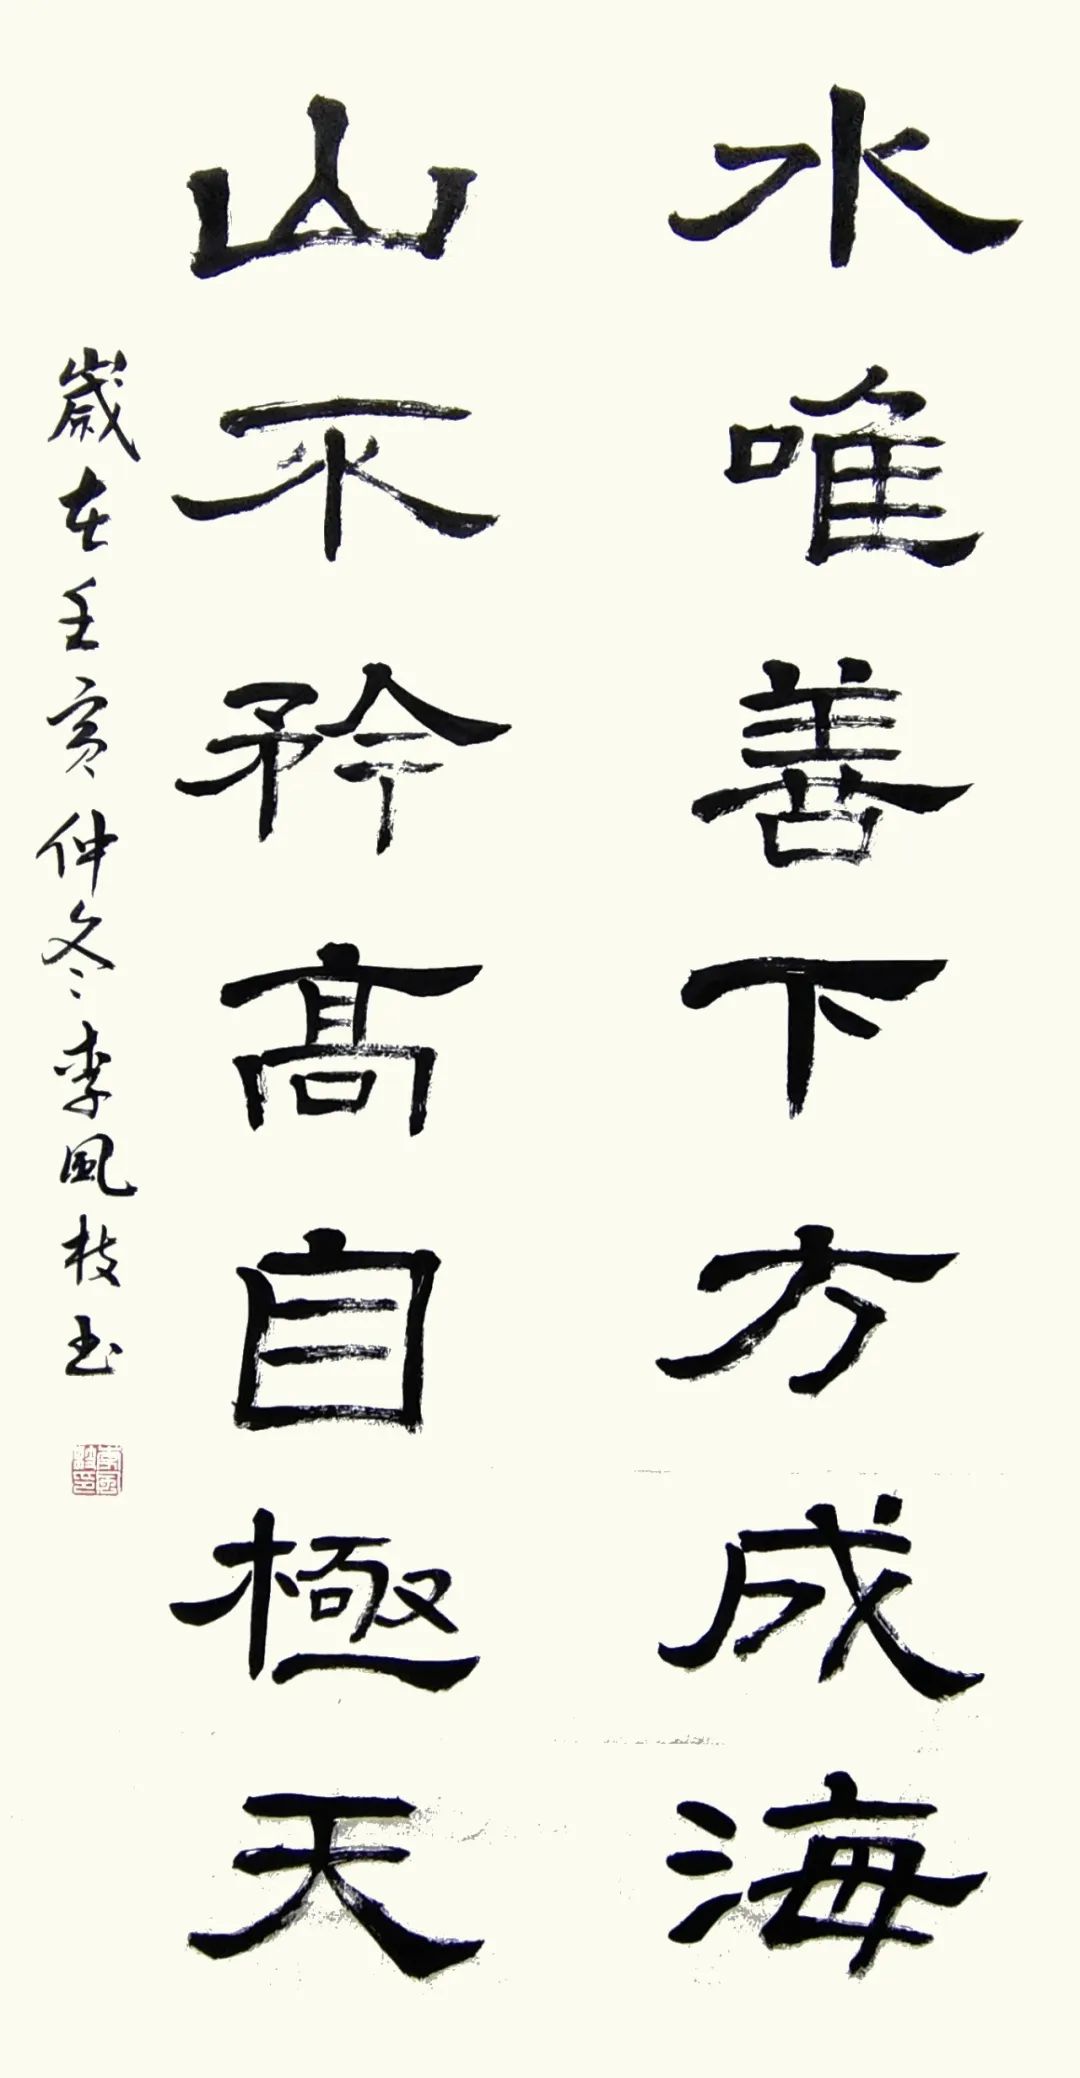 水唯善下方成海
山不矜高自極天
歲在壬寅仲冬李風枝书